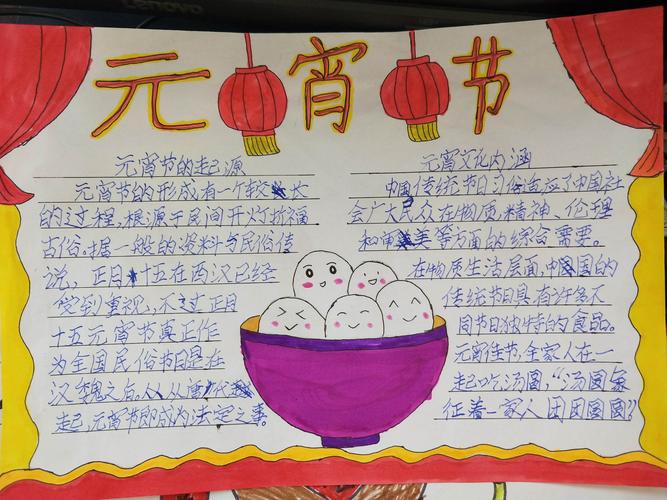 Lenovo
元宵节
元宵节的起源
元宵节的形成有一个较长
的过程,根源于民间开灯祈福
古俗。据一般的资料与民俗传
说,正月十五在西汉已经
受到重视,不过正月
十五元宵节真正作
为全国民俗节日是在
汉魏之后。从唐代
起,元宵节即成为法定之事。
元宵文化内涵
中国传统节日习俗适应了中国社
会广大民众在物质、精神、伦理
和审美等方面的综合需要。
在物质生活层面,中国的
传统节日具有许多不
同节日独特的食品。
元宵佳节,全家人在一
起吃汤圆,“汤圆象
征着一家人团团圆圆”